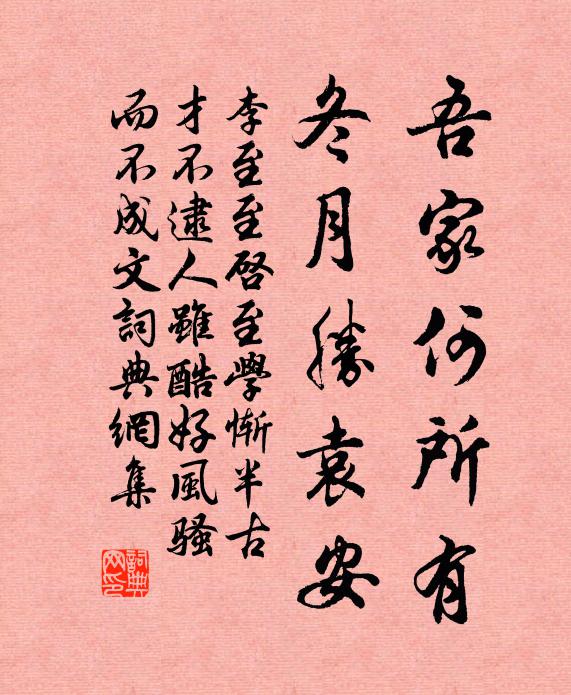 吾家何所有
冬月勝袁安
李至至啓至學慚半古
才不逮人雖酷好風騷
而不成文詞典網集
詞典網印